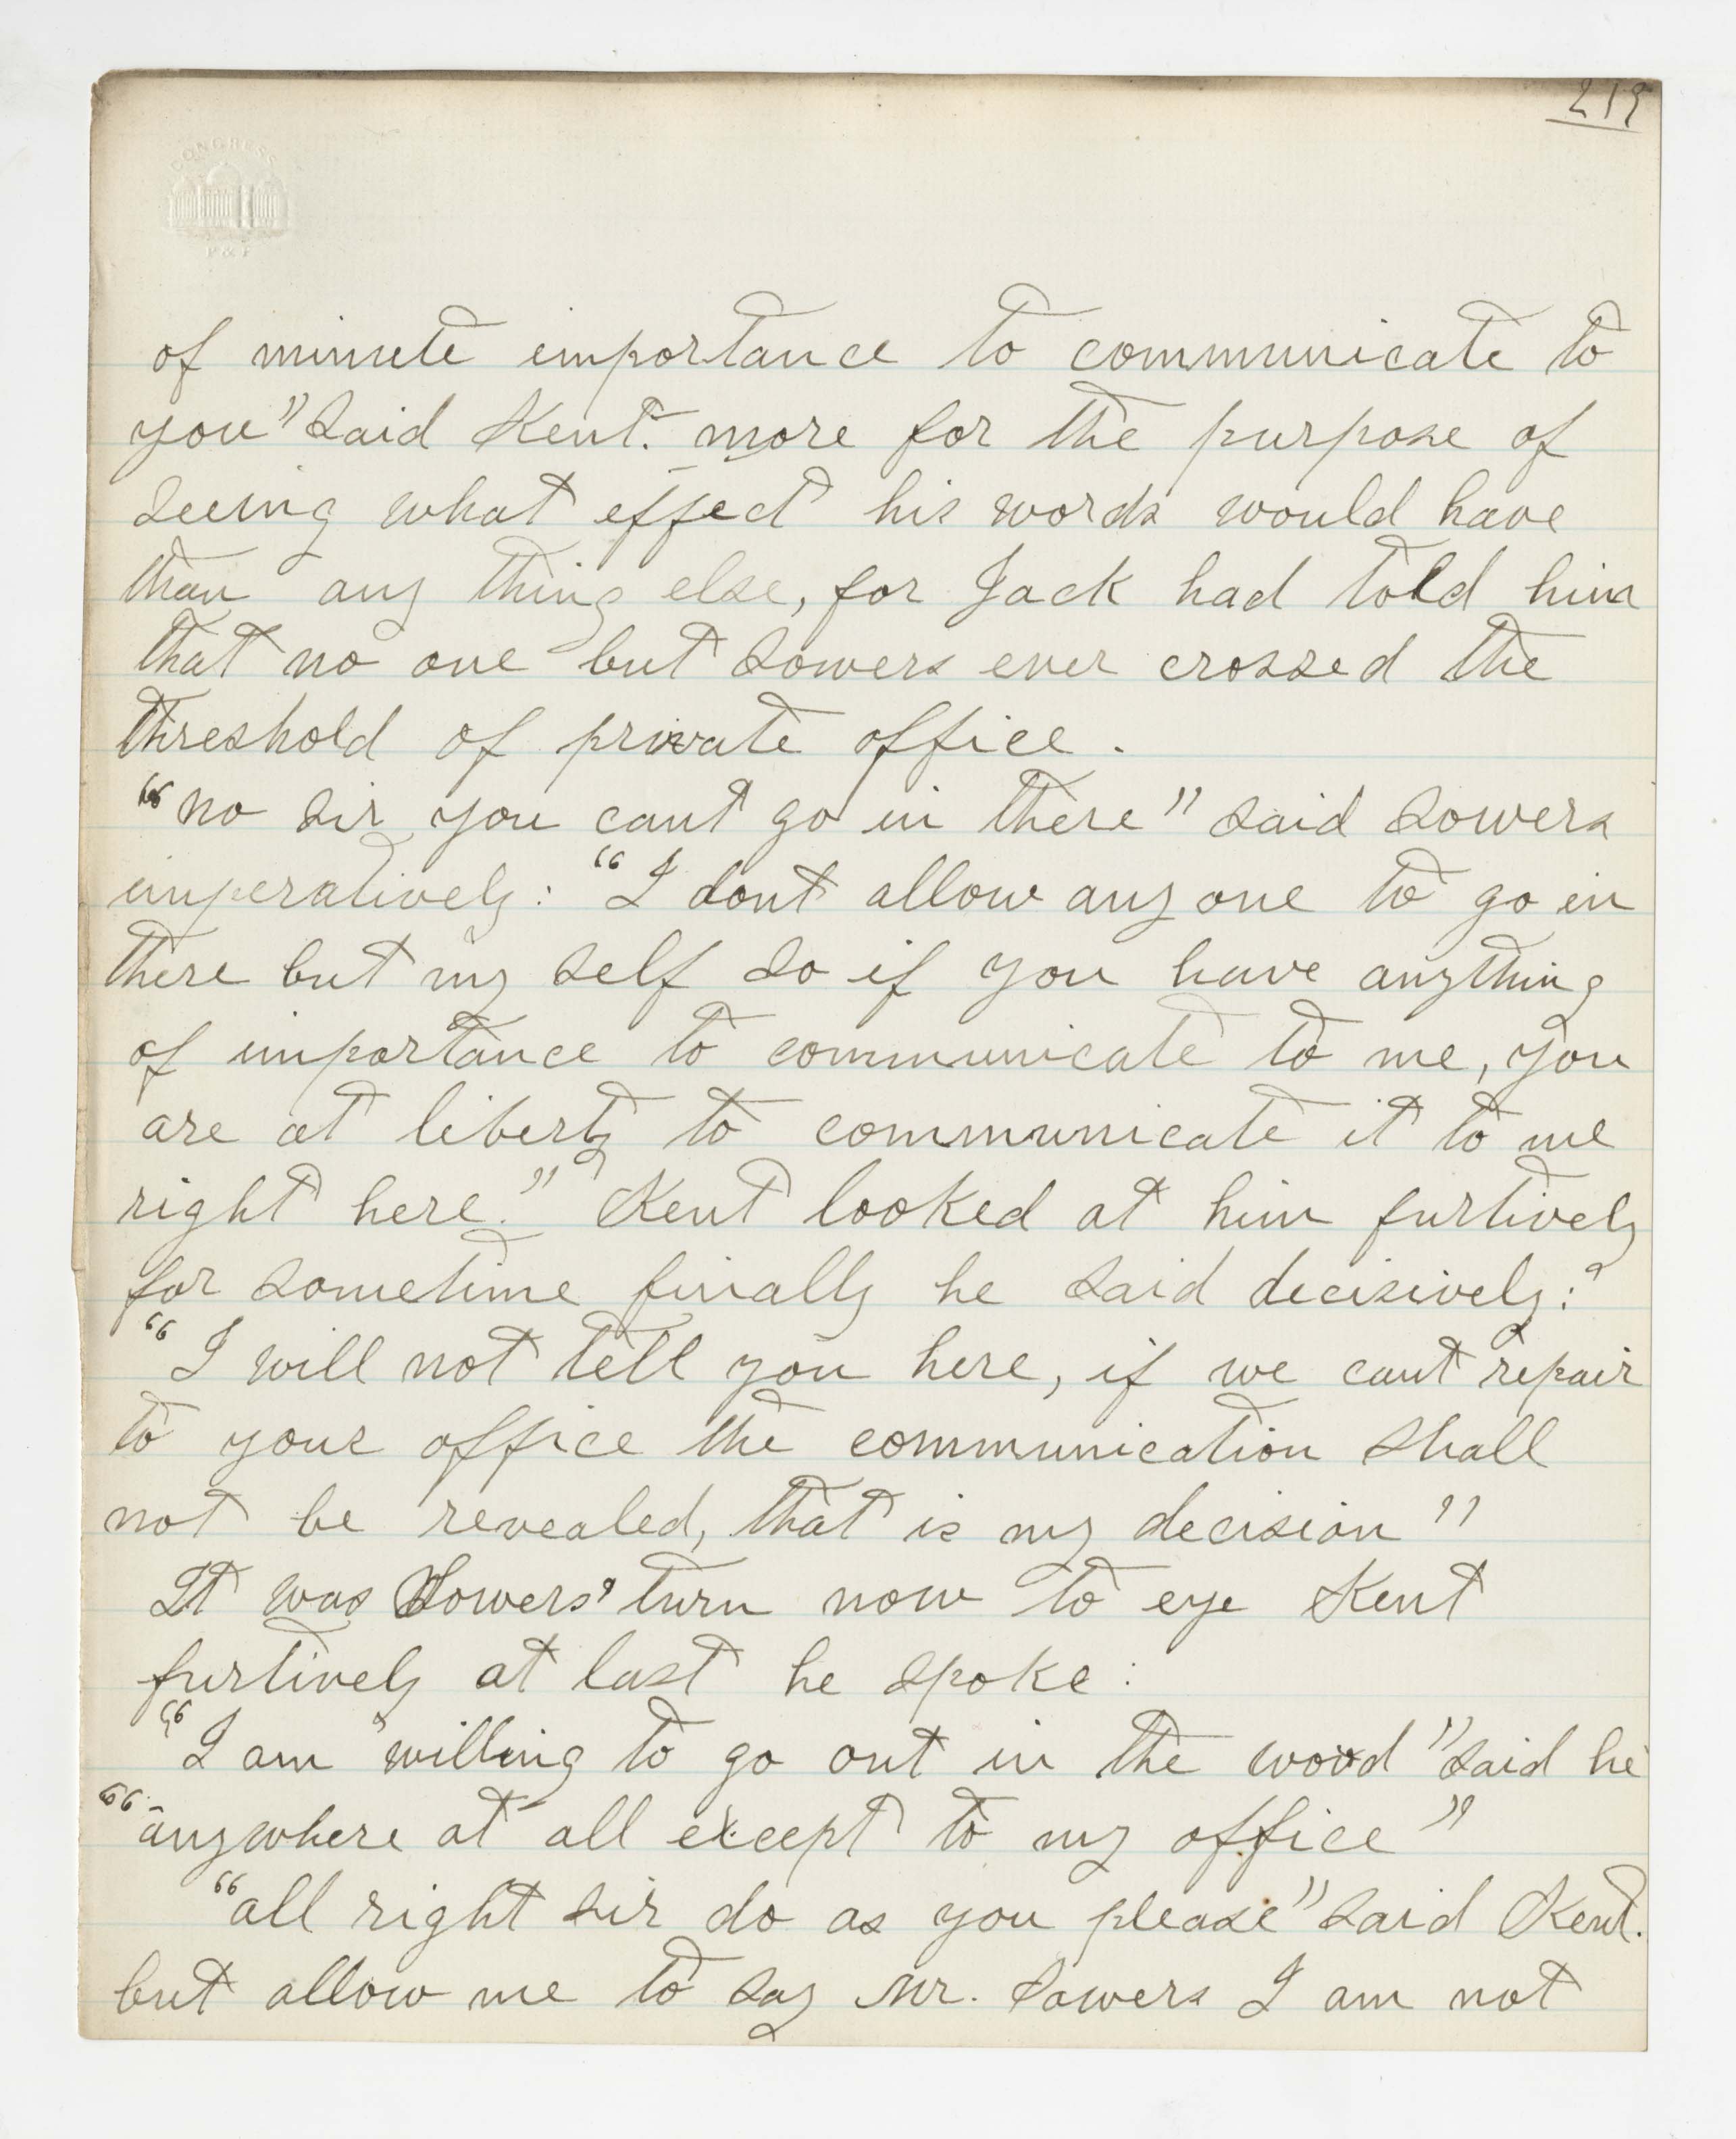 219
CONGRESS
P & P
of minute importance to communicate to
you" said Kent. more for the purpose of
seeing what effect his words would have
than any thing else, for Jack had told him
that no one but Sowers ever crossed the
threshold of private office.
"no sir you cant go in there" said Sowers
imperatively: "I dont allow any one to go in
there but my self so if you have anything
of importance to communicate to me, you
are at liberty to communicate it to me
right here." Kent looked at him furtively
for sometime finally he said decisively:
"I will not tell you here, if we cant repair
to your office the communication shall
not be revealed, that is my decision"
It was Sowers' turn now to eye Kent
furtively at last he spoke:
"I am willing to go out in the wood" said he
"anywhere at all except to my office"
"all right sir do as you please" said Kent.
but allow me to say Mr. Sowers I am not